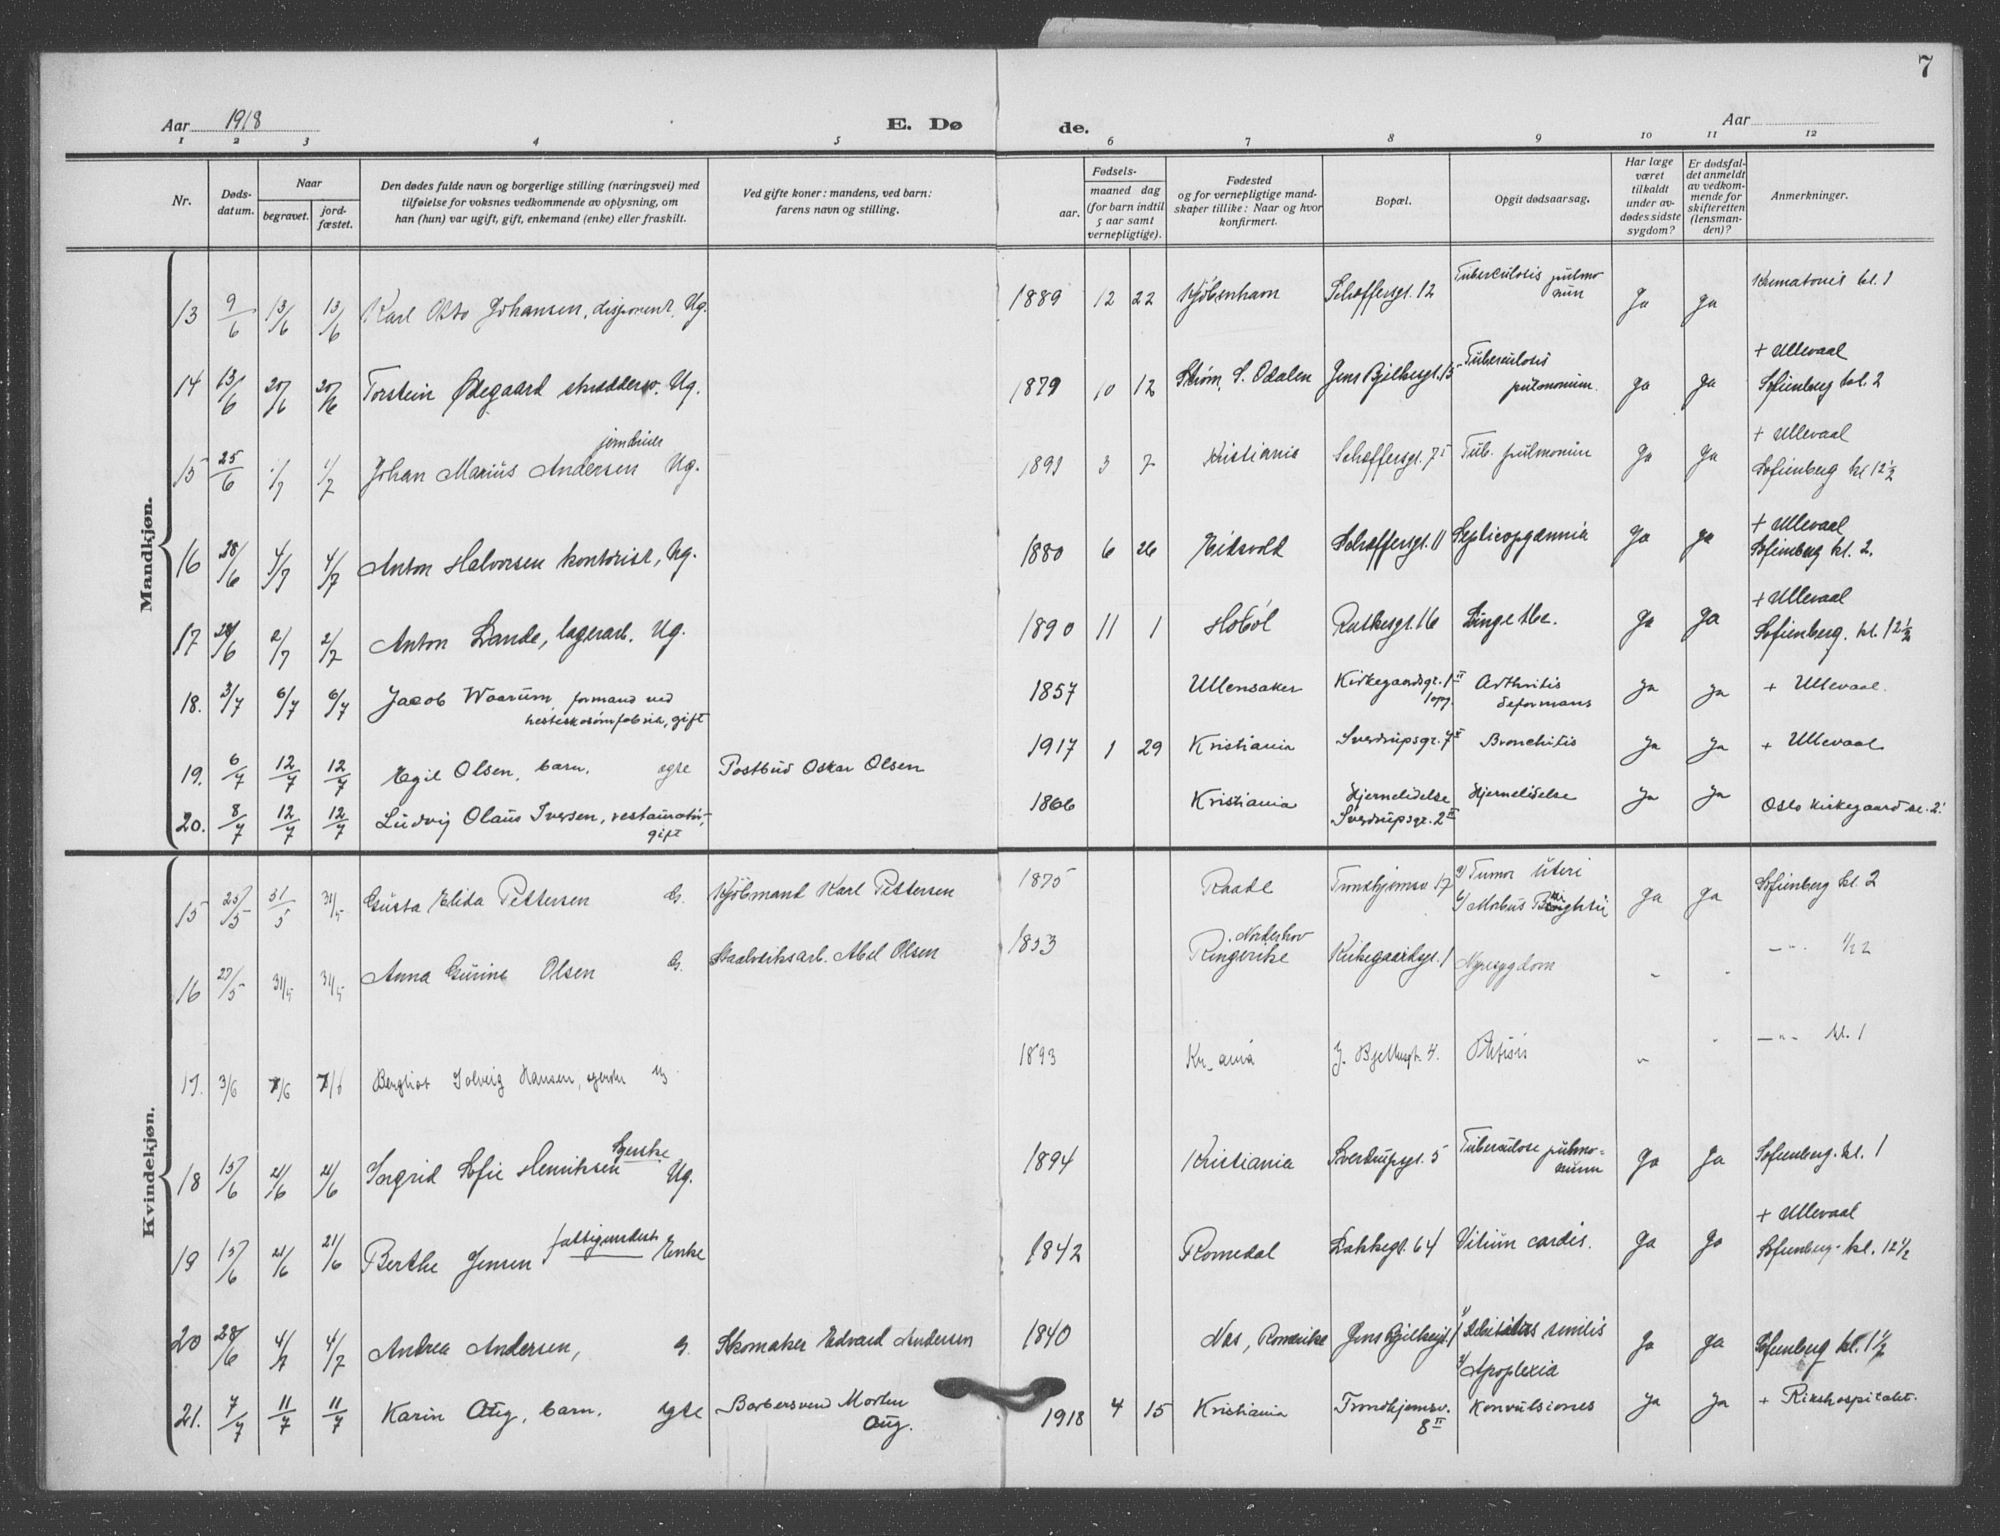 7
Aar 1918 E. Dø de. Aar
1 2 3 4 5 6 7 8 9 10 11 12
Nr. Døds-datum. Naar begravet. jord-fæstet. Den dødes fulde navn og borgerlige stilling (næringsvei) med tilføielse for voksnes vedkommende av oplysning, om han (hun) var ugift, gift, enkemand (enke) eller fraskilt. Ved gifte koner: mandens, ved barn: farens navn og stilling. Fødsels- aar. maaned dag (for barn indtil 5 aar samt vernepligtige). Fødested og for vernepligtige mand-skaper tillike: Naar og hvor konfirmert. Bopæl. Opgit dødsaarsag. Har læge været tilkaldt under av-dødes sidste sygdom? Er dødsfal-det anmeldt av vedkom-mende for skifteretten (lensman-den)? Anmerkninger.
Mandkjøn.
13 9/6 13/6 13/6 Karl Otto Johansen, disponent, Ug. 1889 12 22 Kjøbenhavn Schoffersgt. 12 Tuberculosis pulmo-num Ja Ja Krematoriet kl. 1
14 13/6 20/6 20/6 Torstein Ødegaard skrædderso. Ug. 1879 10 12 Strøm, S. Odalen Jens Bjelkesgt. 15 Tuberculosis pulmonum. Ja Ja + Ullevaal Sofienberg kl. 2
15 25/6 1/7 1/7 Johan Marius Andersen Ug. 3 7 Kristiania Schoffersgt. 7 I Tub. pulmonum Ja Ja + Ullevaal Sofienberg kl 12 1/2
16 28/6 4/7 4/7 Anton Halvorsen kontorist, Ug. 1880 6 26 Eidsvold Schoffersgt. 11 Septicopyæmia Ja Ja + Ullevaal Sofienberg kl. 2.
17 28/6 2/7 2/7 Anton Lande, lagerarb. Ug. 1890 11 1 Hobøl Rathesgt. 16 Lungetbc. Ja Ja + Ullevaal Sofienberg. kl. 12 1/2
18. 3/7 6/7 6/7 Jacob Waarum, formand ved hesteskosømfabrik, gift 1857 Ullensaker Kirkegaardsgt. 1 II opg. Arthritis deformans Ja Ja + Ullevaal.
19. 6/7 12/7 12/7 Egil Olsen, barn. egte Postbud Oskar Olsen 1917 1 29 Kristiania Sverdrupsgt. 7 II Bronchitis Ja Ja + Ullevaal
20. 8/7 12/7 12/7 Ludvig Olaus Iversen, restauratør, gift 1866 Kristiania Hjernelidelse Sverdrupsgt. 2 II Hjernelidelse Ja Ja Oslo kirkegaard kl. 2.
Kvindekjøn.
15 25/5 31/5 31/5 Gusta Elida Pettersen G. Kjøbmand Karl Pettersen 1875 Raade Trondhjemsv 17 a/ Tumor uteri b/ Morbus Brightii Ja Ja Sofienberg kl. 2
16 27/5 31/5 31/5 Anna Gurine Olsen G. Staalverksarb. Abel Olsen 1853 Norderhov Ringerike Kirkegaardsgt. 1 Nyresygdom " " — " — 1/2 2
17. 3/6 7/6 7/6 Bergliot Solveig Hansen, Ug. 1893 Kr_ania J. Bjelkesgt. 4. Phtisis " " — " — kl. 1
18 15/6 21/6 21/6 Ingrid Sofie Henriksen Syerske Ug. 1894 Kristiania Sverdrupsgt. 5 Tuberculose pulmo-num Ja Ja Sofienberg. kl. 1
19 15/6 21/6 21/6 Berthe Jensen fattigunderst. Enke 1842 Romedal Lakkegt. 64 Vitium cordis. Ja Ja + Ullevaal Sofienberg. kl. 12 1/2
20 28/6 4/7 4/7 Andrea Andersen, G. Skomaker Edvard Andersen 1840 Nes, Romerike Jens Bjelkesgt. 1 a/ Debilitas senilis b/ Apoplexia Ja Ja Sofienberg kl. 1 1/2
21. 7/7 11/7 11/7 Karin Aug, barn. egte Barbersvend Morten Aug. 1918 4 15 Kristiania Trondhjemsv. 8 II Konvulsiones Ja Ja + Rikshospitalet.